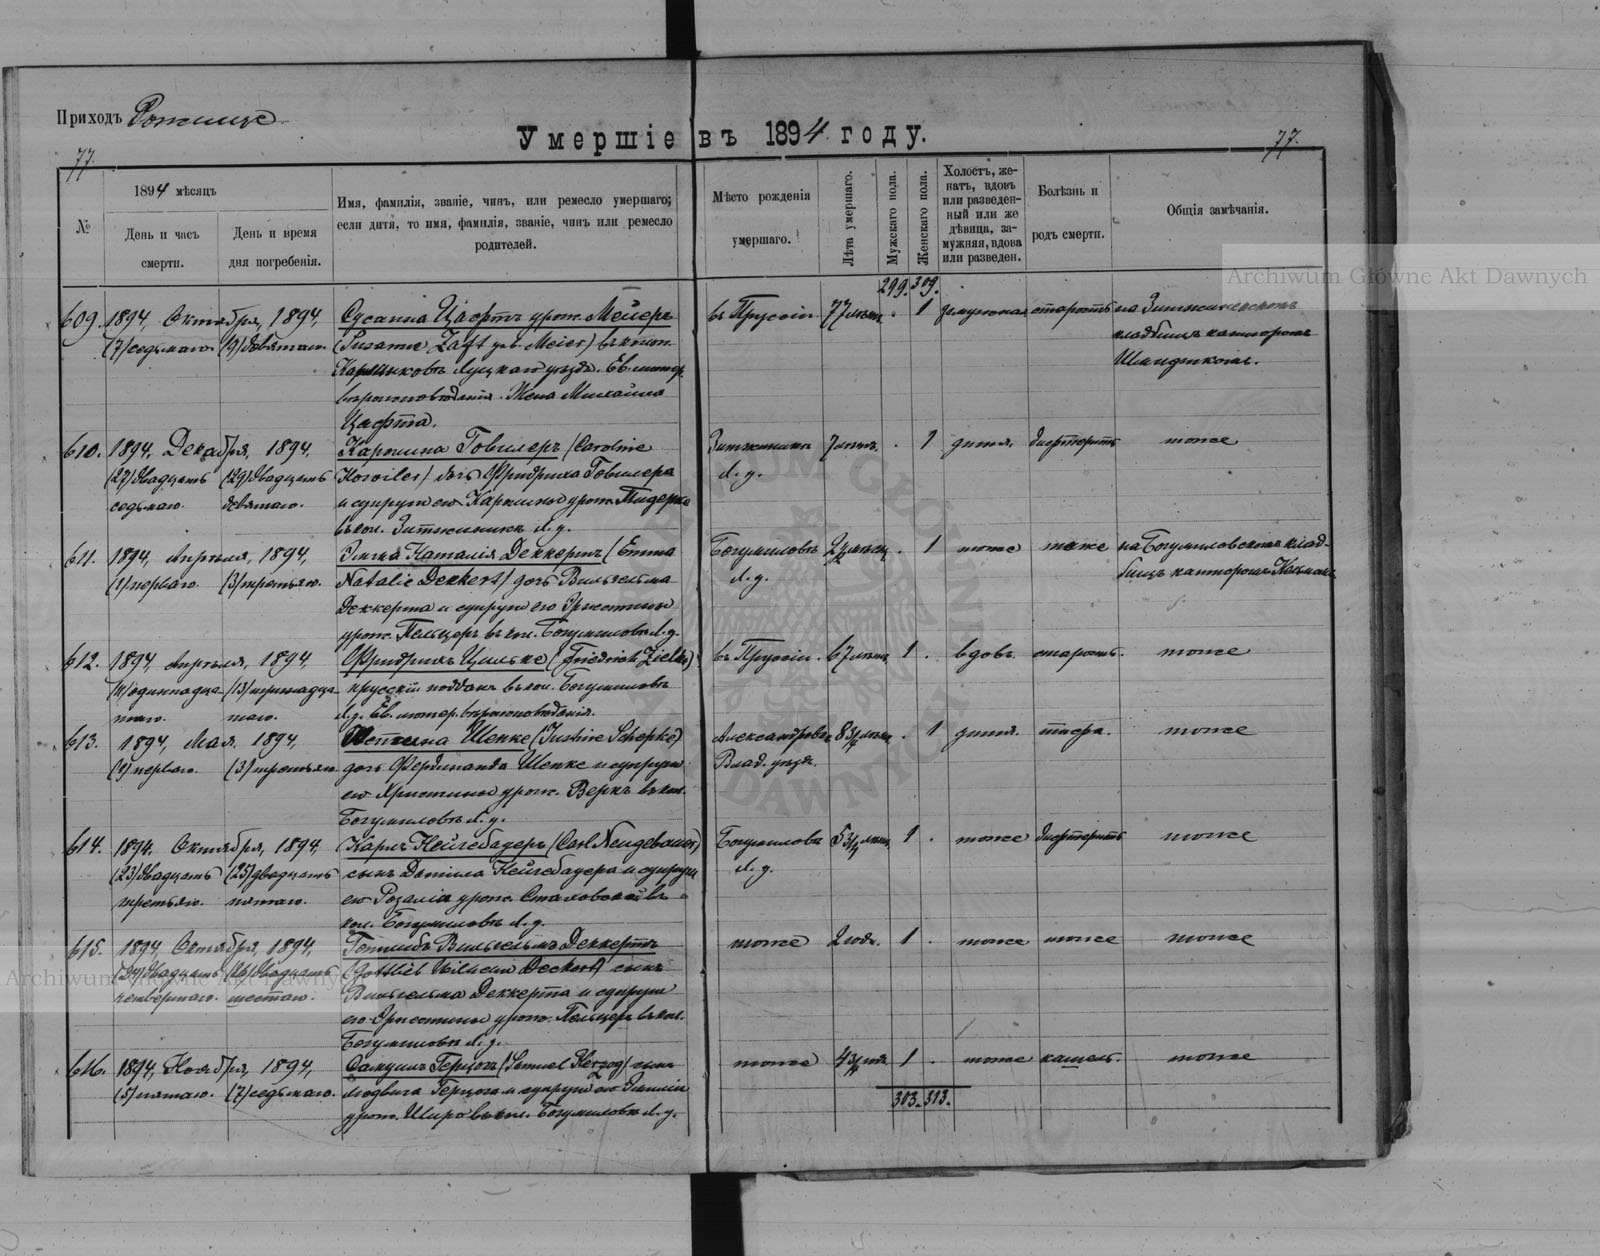 Приходъ Рожище
Умершіе въ 1894 году.
77.
77.
№
1894 мѣсяцъ
День и часъ смерти.
День и время дня погребенія.
Имя, фамилія, званіе, чинъ, или ремесло умершаго;
если дитя, то имя, фамилія, званіе, чинъ или ремесло
родителей.
Мѣсто рожденія
умершаго.
Лѣта умершаго.
Мужскаго пола.
Женскаго пола.
Холостъ, же-
натъ, вдовъ
или разведен-
ный или же
дѣвица, за-
мужняя, вдова
или разведен.
Болѣзнь и
родъ смерти.
Общія замѣчанія.
299. 309.
609. 1894, Октября, 1894, Сусанна Цафтъ урож. Мейеръ въ Пруссіи 77 лѣтъ . 1 замужная старость на
(7) седьмаго. (9) девятаго. (Susanne Zaft geb. Meier) въ кол. кладбищѣ канторомъ
Луцкаго уѣзда. Ев. лютер.
вѣроисповѣданія. Жена Михаила
Цафта.
610. 1894, Декабря, 1894, Каролина Говилеръ (Caroline 7 лѣтъ . 1 дитя. дифтеритъ тоже
(27) двадцать (29) двадцать дочь Фридриха Говилера Л. у.
седьмаго. девятаго. и супруги его Каролины урож.
въ кол. Л. у.
611. 1894, Апрѣля, 1894, Эмма Наталія Деккертъ (Emma Богумиловъ . 1 тоже тоже на Богумиловскомъ клад-
(1) перваго. (3) третьяго. Natalie Deckert) дочь Вильгельма Л. у. бищѣ канторомъ
Деккерта и супруги его Эрнестины
урож. Пельцеръ въ кол. Богумиловъ Л. у.
612. 1894, Апрѣля, 1894, Фридрихъ Цильке (Friedrich Zielke) въ Пруссіи. 67 лѣтъ 1 . вдовъ. старость. тоже
(11) одиннадца- (13) тринадца- прусскій поддан. въ кол. Богумиловъ
таго. таго. Л. у. Ев. лютер. вѣроисповѣданія.
613. 1894, Мая, 1894, Шепке (Justine Schepke) Александровка . 1 дитя. тоже
(1) перваго. (3) третьяго дочь Фердинанда Шепке и супруги Влад. уѣзда.
его Христины урож. Беркъ въ кол.
Богумиловъ Л. у.
614. 1894. Октября, 1894, Карлъ Нейгебауеръ (Carl Neugebauer) Богумиловъ 1 . тоже дифтеритъ тоже
(23) двадцать (25) двадцать сынъ Нейгебауера и супруги Л. у.
третьяго. пятаго. его Розаліи урож. въ
кол. Богумиловъ Л. у.
615. 1894, Октября, 1894, Готлибъ Вильгельмъ Деккертъ тоже 2 года. 1 . тоже тоже тоже
(24) двадцать (26) двадцать (Gottlieb Wilhelm Deckert) сынъ
четвертаго. шестаго. Вильгельма Деккерта и супруги
его Эрнестины урож. Пельцеръ въ кол.
Богумиловъ Л. у.
616. 1894, Ноября, 1894, Самуилъ Герцогъ (Samuel Herzog) сынъ тоже 1 . тоже кашель. тоже
(5) пятаго. (7) седьмаго. Людвига Герцога и супруги его Эмиліи
урож. въ кол. Богумиловъ Л. у.
303. 313.
Archiwum Główne Akt Dawnych
Archiwum Główne Akt Dawnych